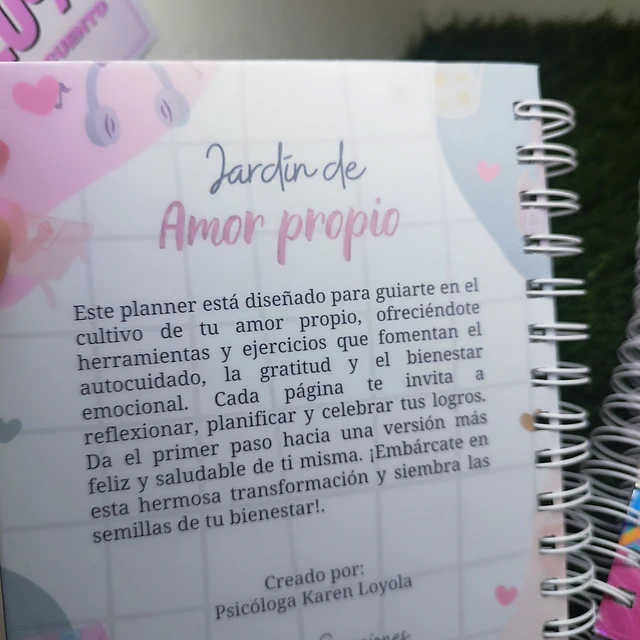 Jardín de
Amor propio
Este planner está diseñado para guiarte en el
cultivo de tu amor propio, ofreciéndote
herramientas y ejercicios que fomentan el
autocuidado, la gratitud y el bienestar
emocional. Cada página te invita a
reflexionar, planificar y celebrar tus logros.
Da el primer paso hacia una versión más
feliz y saludable de ti misma. ¡Embárcate en
esta hermosa transformación y siembra las
semillas de tu bienestar!.
Creado por:
Psicóloga Karen Loyola